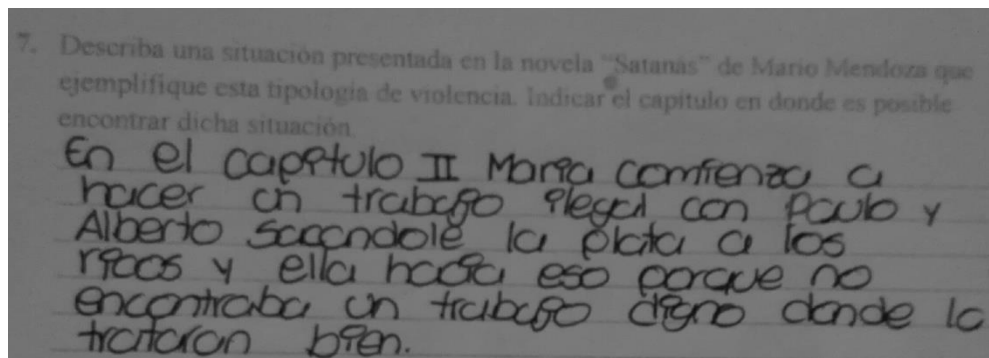 7. Describa una situación presentada en la novela "Satanás" de Mario Mendoza que
ejemplifique esta tipología de violencia. Indicar el capítulo en donde es posible
encontrar dicha situación.
En el capítulo II María comienza a
hacer un trabajo ilegal con Paulo y
Alberto sacandole la plata a los
ricos y ella hacía eso porque no
encontraba un trabajo digno donde la
trataran bien.